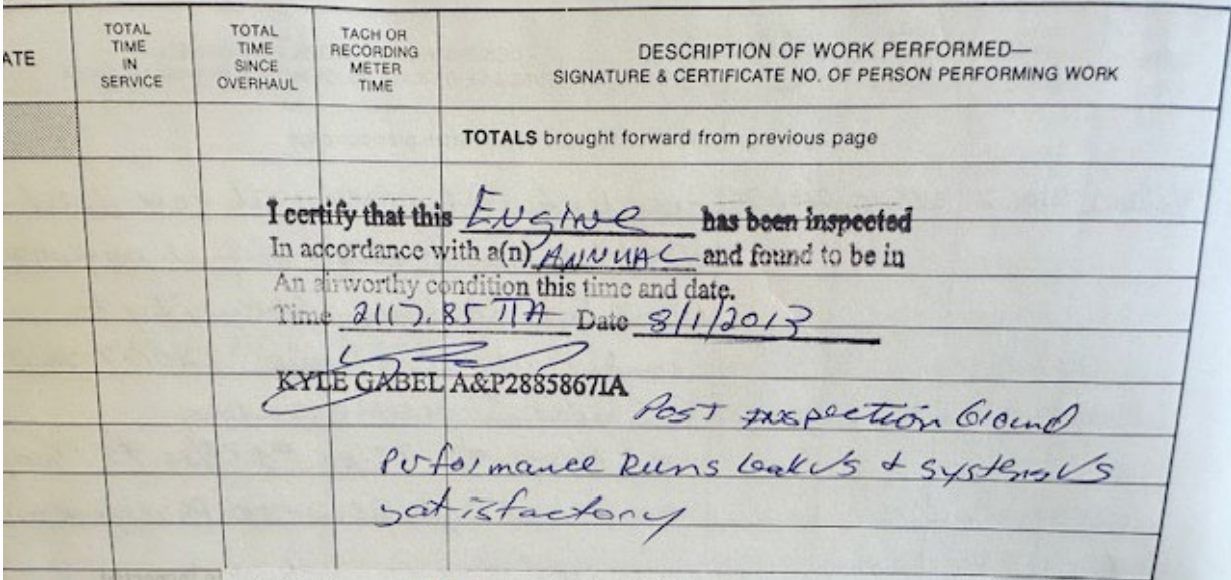 ATE
TOTAL TIME IN SERVICE
TOTAL TIME SINCE OVERHAUL
TACH OR RECORDING METER TIME
DESCRIPTION OF WORK PERFORMED—
SIGNATURE & CERTIFICATE NO. OF PERSON PERFORMING WORK
TOTALS brought forward from previous page
I certify that this Engine has been inspected
In accordance with a(n) ANNUAL and found to be in
An airworthy condition this time and date.
Time 2117.85 TTA Date 8/1/2013
KYLE GABEL A&P2885867IA
Post inspection Ground
Performance Runs leak √s & systems √s
satisfactory